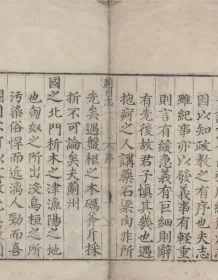 因以知政教之有序也夫志
雖紀事亦以發義事有輕重
則言有緩急義有巨細則辭
有先後故君子慎其幾也遇
抱痾之人講藥石梁肉非所
薊州志 序
先矣遇盤根之木礪斧斤採
折不可論矣夫薊州
國之北門析木之津漁陽之地
也匈奴之所出没烏桓之所
污染俗悍而近滴人勁而喜